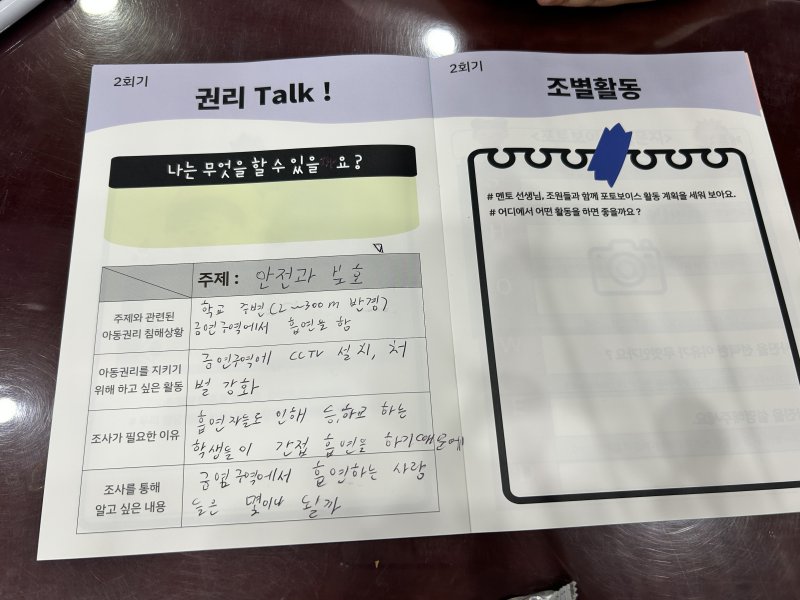 2회기
권리 Talk !
나는 무엇을 할 수 있을 요?
주제 : 안전과 보호
주제와 관련된
아동권리 침해상황
학교 주변(2~300m 반경)
금연구역에서 흡연을 함
아동권리를 지키기
위해 하고 싶은 활동
금연구역에 CCTV 설치, 처
벌 강화
조사가 필요한 이유
흡연자들로 인해 등,하교 하는
학생들이 간접 흡연을 하기 때문에
조사를 통해
알고 싶은 내용
금연구역에서 흡연하는 사람
들은 몇이나 될까
2회기
조별활동
# 멘토 선생님, 조원들과 함께 포토보이스 활동 계획을 세워 보아요.
# 어디에서 어떤 활동을 하면 좋을까요 ?